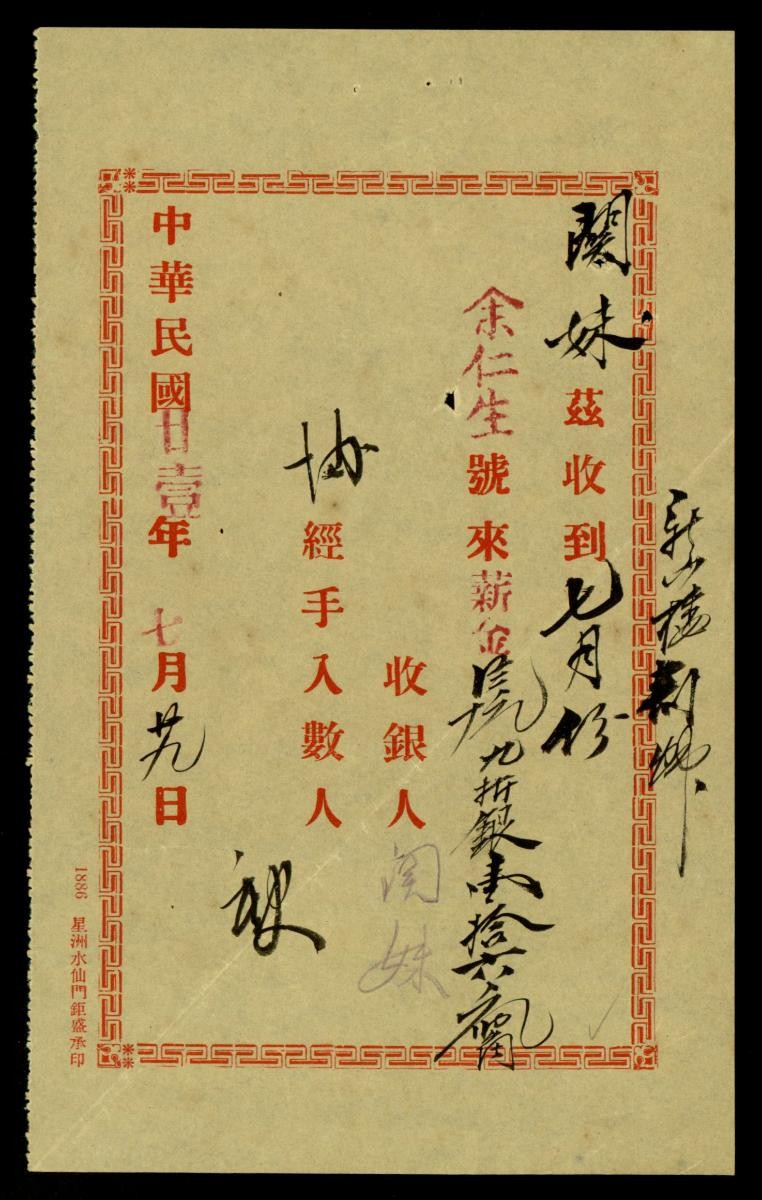 關妹茲收到七月份
余仁生號來薪金九折銀壹拾六
收銀人 关妹
協經手入數人
中華民國廿壹年七月廿九日
1886 星洲水仙門鉅盛承印